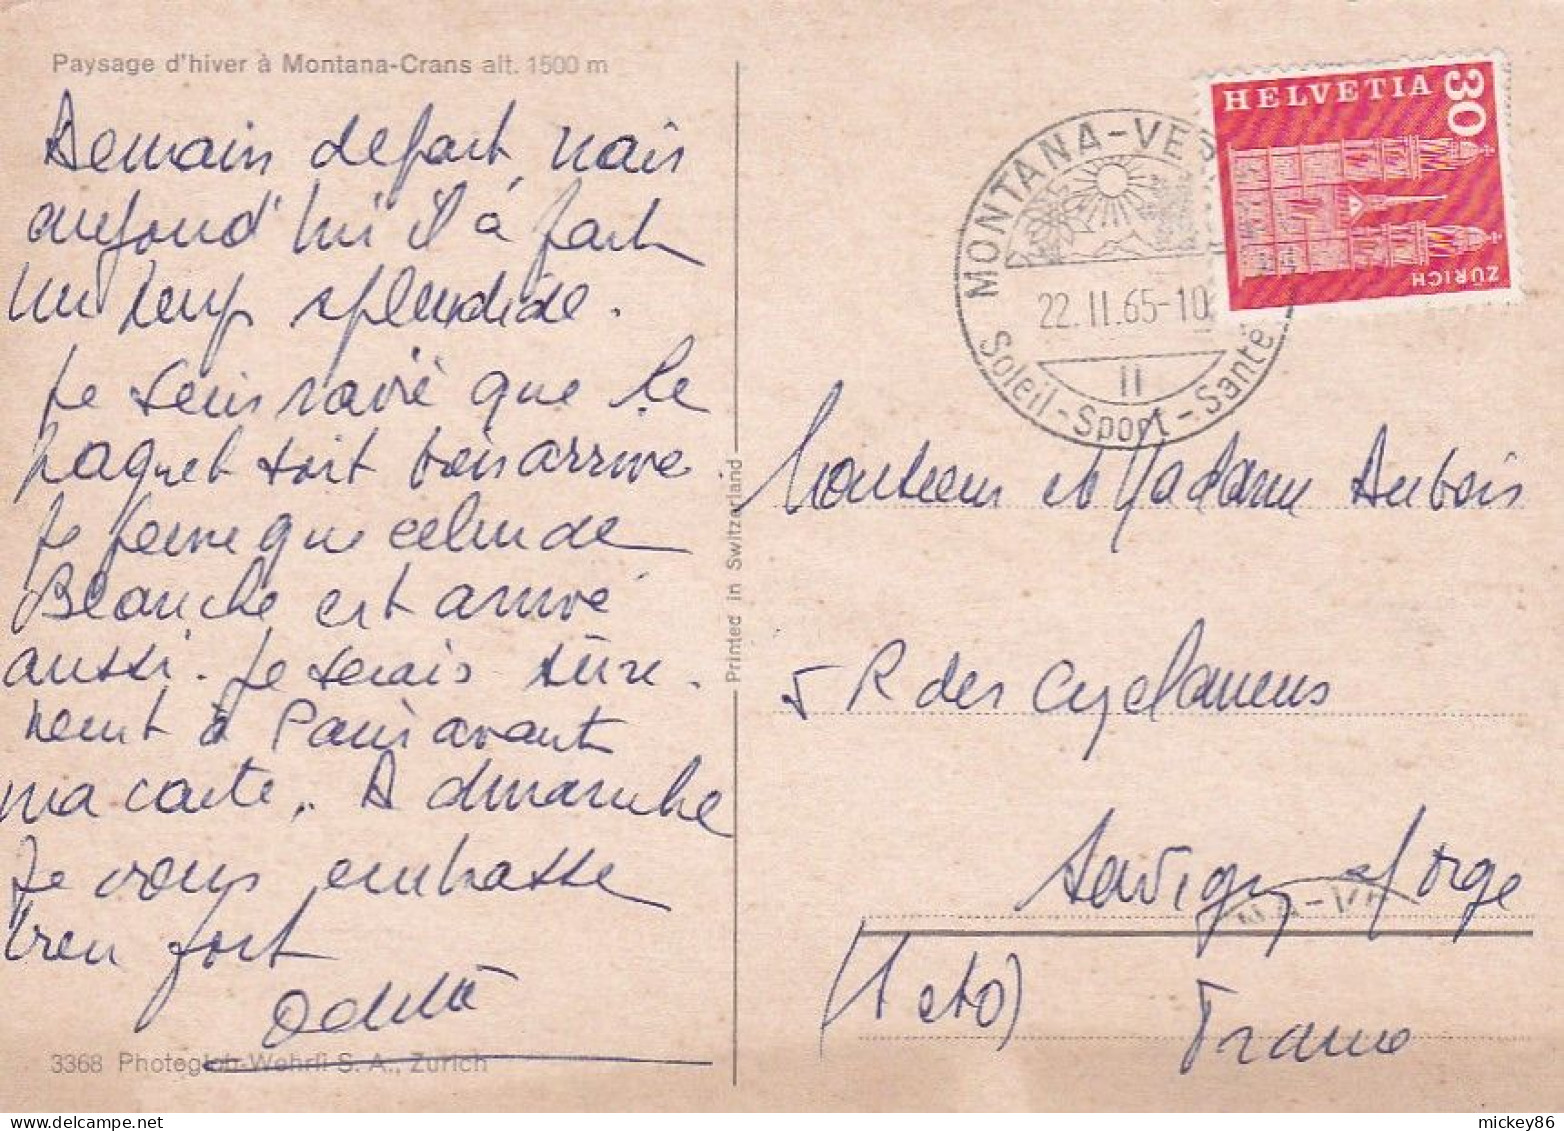 Paysage d'hiver à Montana-Crans alt. 1500 m
Demain depart, mais
aujourd'hui il à fait
un temps splendide.
Je suis ravie que le
paquet soit bien arrivé
Je pense que celui de
Blanche est arrivé
aussi. Je serais sûre-
ment à Paris avant
ma carte.. A dimanche
Je vous embrasse
bien fort
Odette
3368 Photoglob-Wehrli S. A., Zürich
Printed in Switzerland
HELVETIA
30
ZÜRICH
MONTANA-VER
22.II.65-10
II
Soleil-Sport-Santé
Monsieur et Madame Dubois
5 R des Cyclamens
Savigny s/orge
NA-VE
(S et O)
France
mickey86